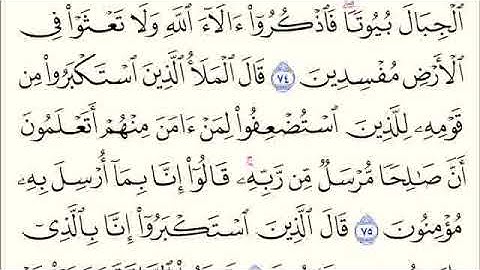 ٱلۡجِبَالَ بُيُوتٗاۖ فَٱذۡكُرُوٓاْ ءَالَآءَ ٱللَّهِ وَلَا تَعۡثَوۡاْ فِي
ٱلۡأَرۡضِ مُفۡسِدِينَ ٧٤ قَالَ ٱلۡمَلَأُ ٱلَّذِينَ ٱسۡتَكۡبَرُواْ مِن
قَوۡمِهِۦ لِلَّذِينَ ٱسۡتُضۡعِفُواْ لِمَنۡ ءَامَنَ مِنۡهُمۡ أَتَعۡلَمُونَ
أَنَّ صَٰلِحٗا مُّرۡسَلٞ مِّن رَّبِّهِۦۚ قَالُوٓاْ إِنَّا بِمَآ أُرۡسِلَ بِهِۦ
مُؤۡمِنُونَ ٧٥ قَالَ ٱلَّذِينَ ٱسۡتَكۡبَرُوٓاْ إِنَّا بِٱلَّذِيٓ